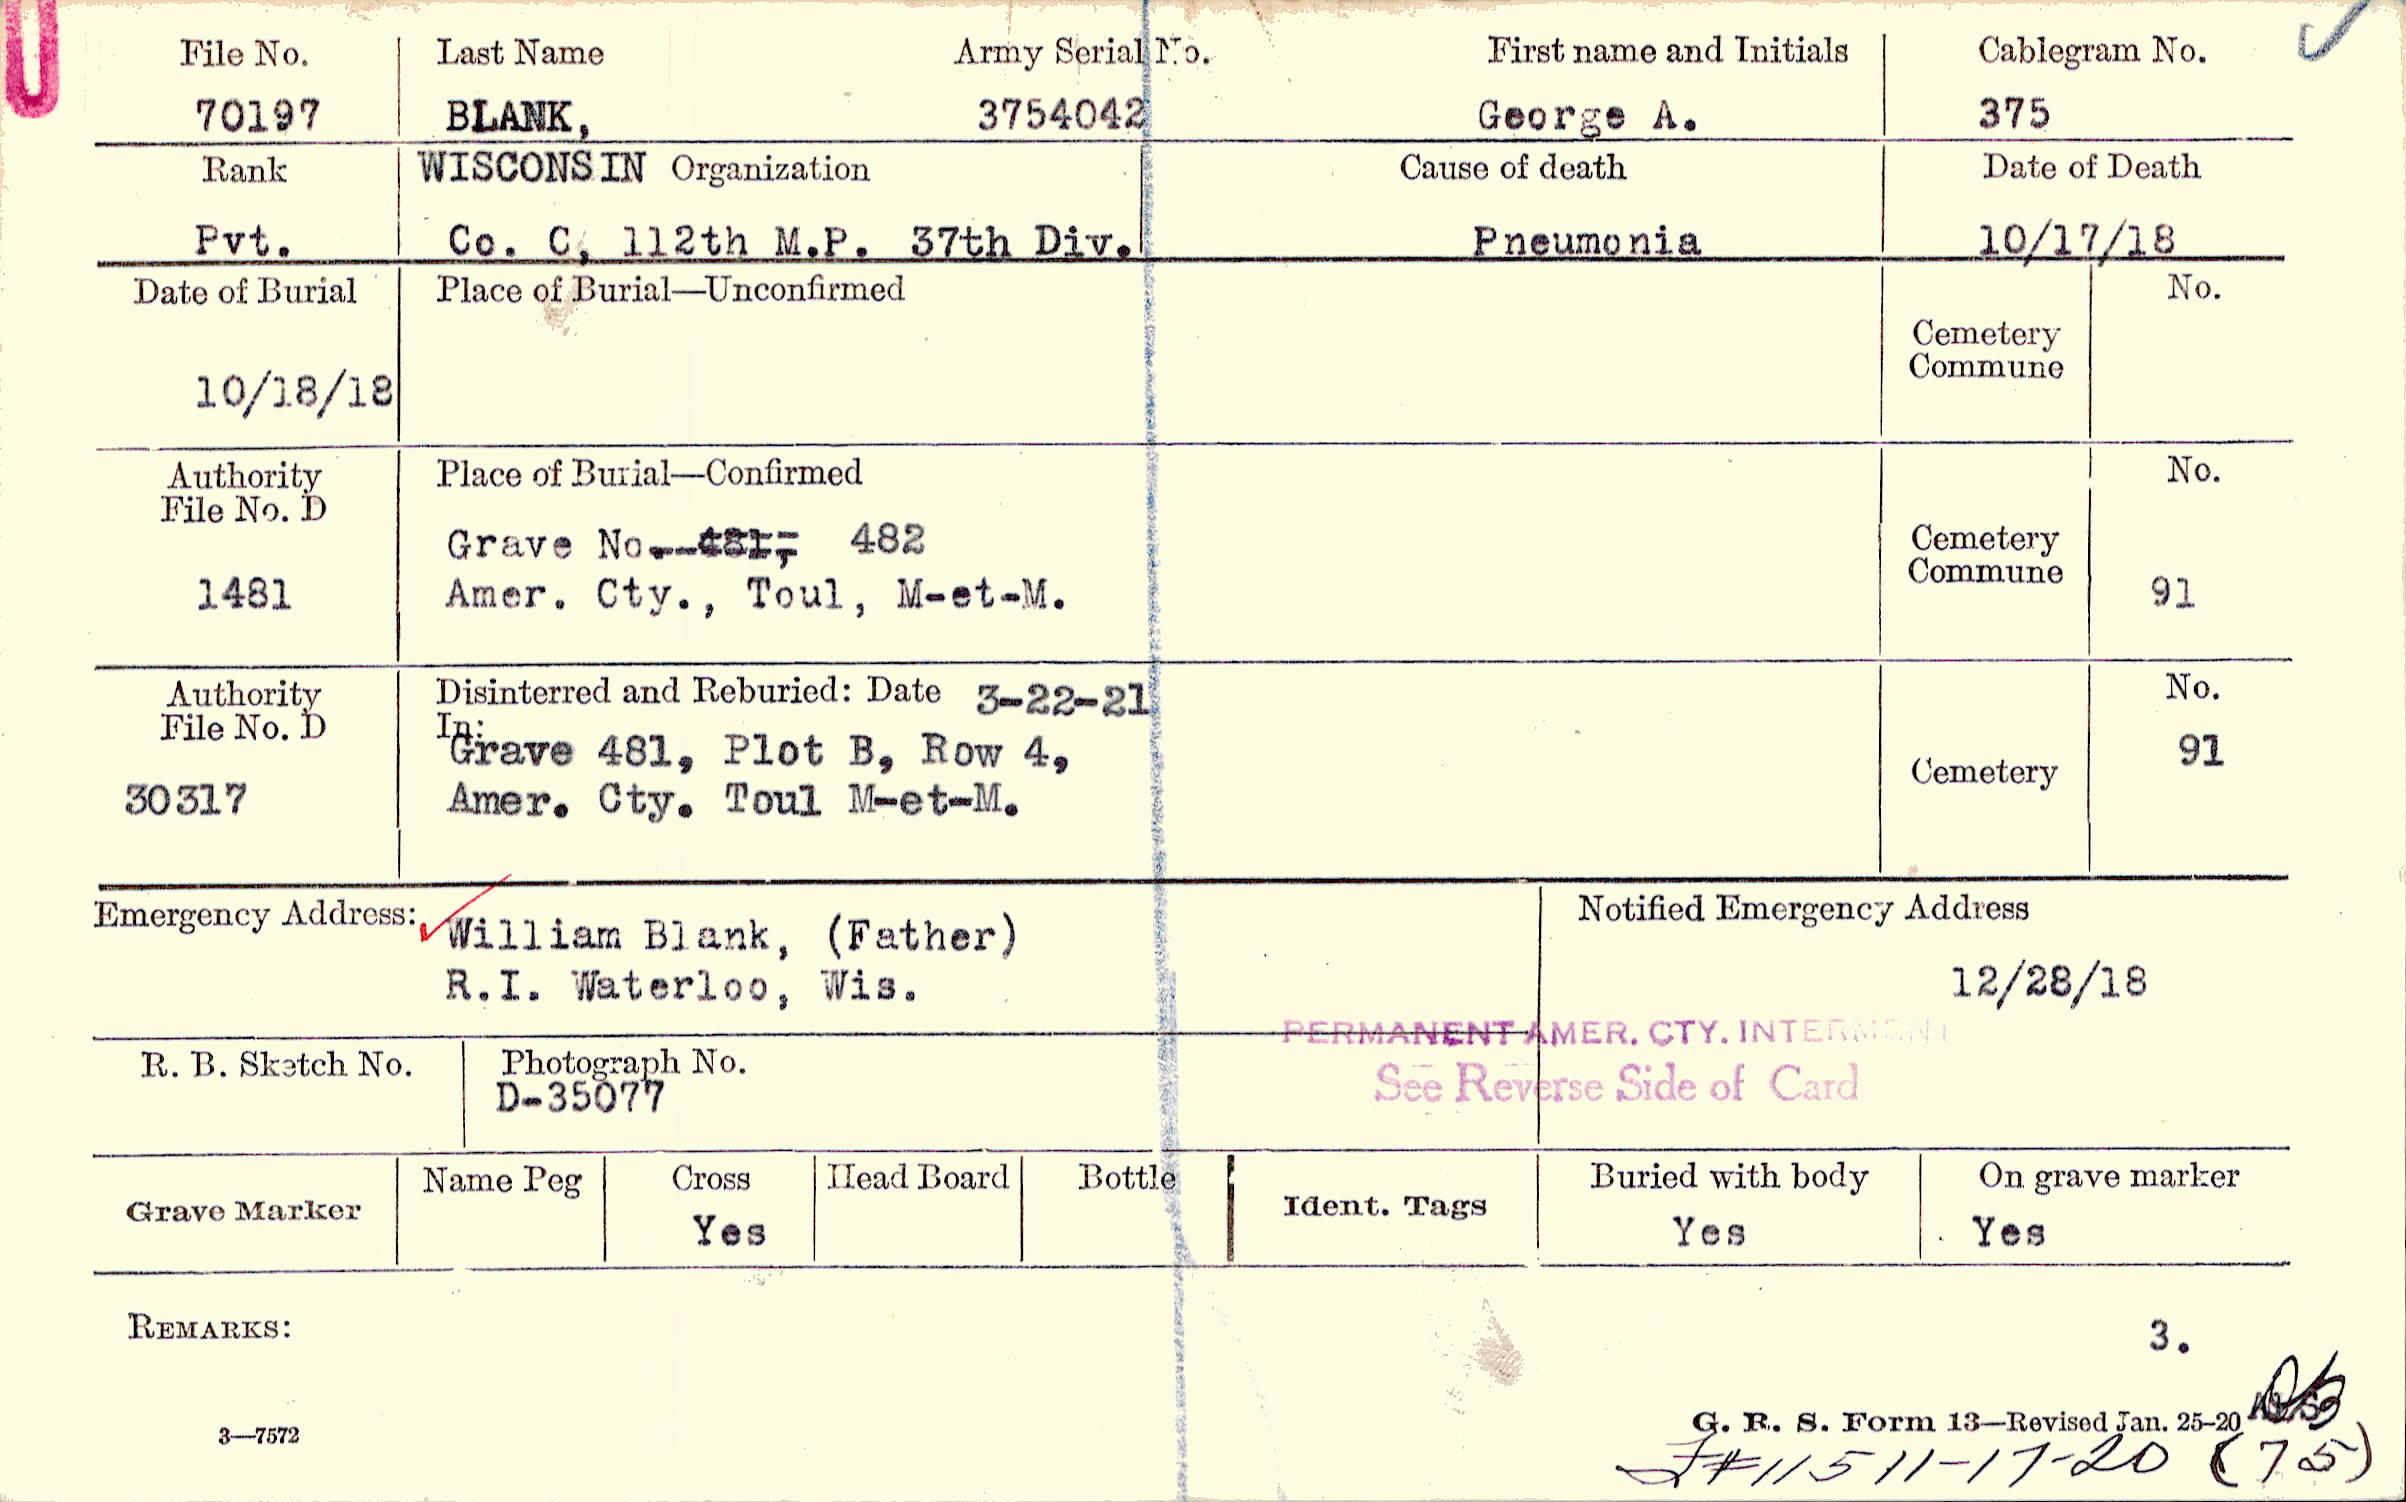 File No. Last Name Army Serial No. First name and Initials Cablegram No.
70197 BLANK, 3754042 George A. 375
Rank WISCONSIN Organization Cause of death Date of Death
Pvt. Co. C, 112th M.P. 37th Div. Pneumonia 10/17/18
Date of Burial Place of Burial—Unconfirmed No.
Cemetery
Commune
10/18/18
Authority Place of Burial—Confirmed No.
File No. D
Grave No. 481, 482 Cemetery
Commune
1481 Amer. Cty., Toul, M-et-M. 91
Authority Disinterred and Reburied: Date 3-22-21 No.
File No. D In:
Grave 481, Plot B, Row 4, 91
Cemetery
30317 Amer. Cty. Toul M-et-M.
Emergency Address: Notified Emergency Address
William Blank, (Father)
R.I. Waterloo, Wis. 12/28/18
PERMANENT AMER. CTY. INTERMENT
R. B. Sketch No. Photograph No. See Reverse Side of Card
D-35077
Name Peg Cross Head Board Bottle Buried with body On grave marker
Grave Marker Ident. Tags
Yes Yes Yes
REMARKS:
3.
3—7572 G. R. S. Form 13—Revised Jan. 25-20
#115 11-17-20 (75)